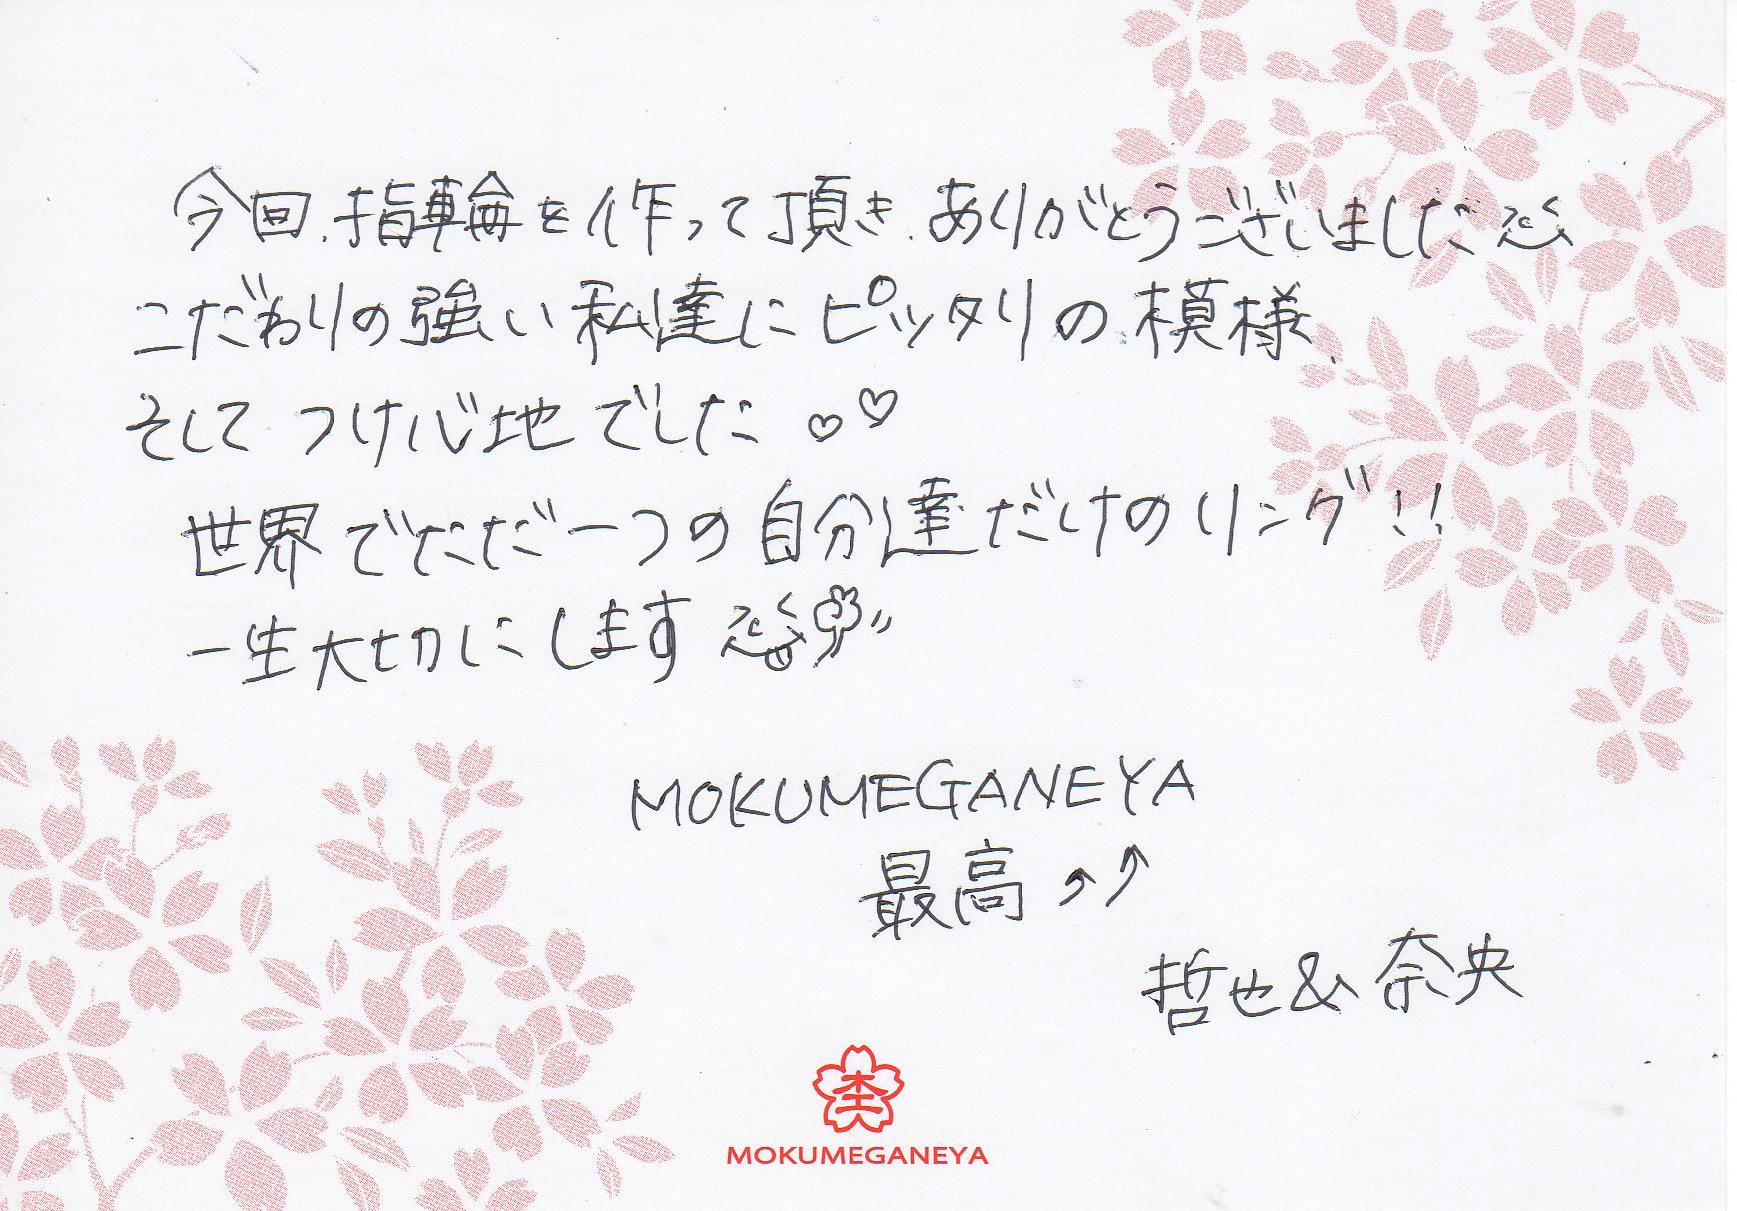 今回、指輪を作って頂き、ありがとうございました
こだわりの強い私達にピッタリの模様、
そして つけ心地でした ♡♡
世界でただ一つの自分達だけのリング!!
一生大切にします
MOKUMEGANEYA
最高↗↗
哲也&奈央
MOKUMEGANEYA